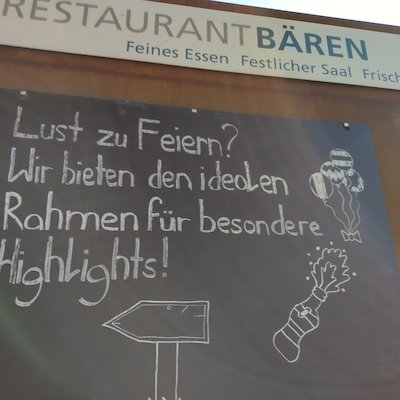 RESTAURANT BÄREN
Feines Essen Festlicher Saal Frisch
Lust zu Feiern?
Wir bieten den idealen
Rahmen für besondere
Highlights!